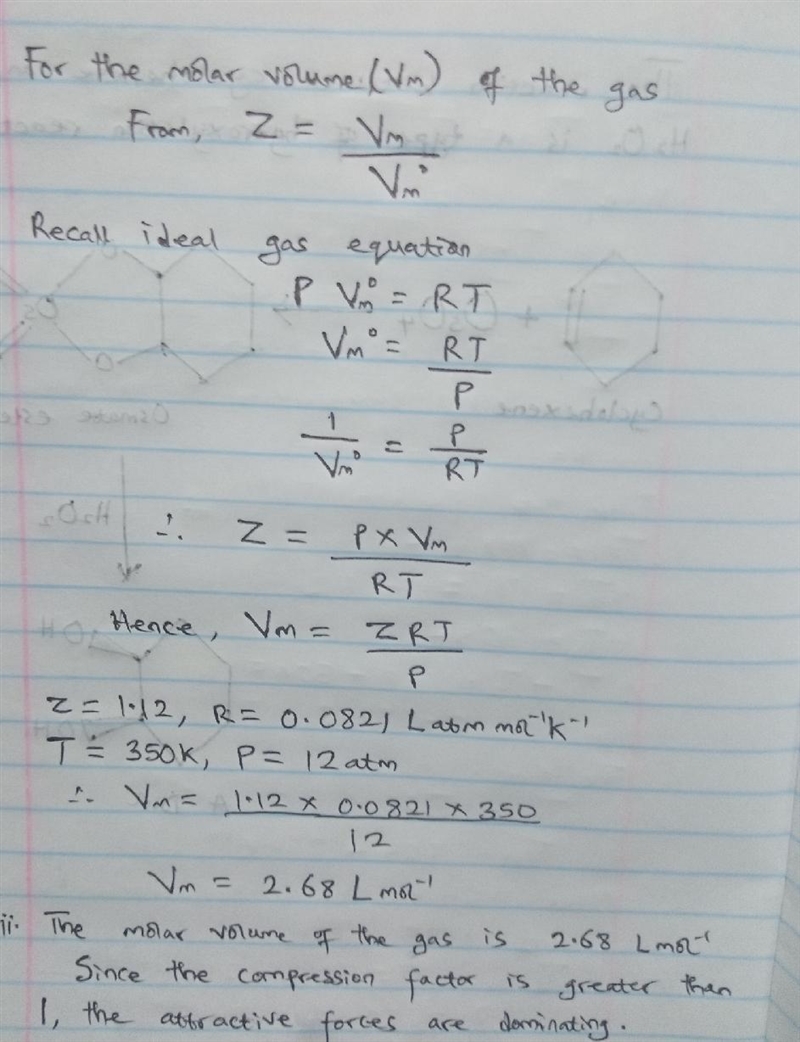 For the molar volume (Vm) of the gas
From, Z = Vm / Vm°
Recall ideal gas equation
P Vm° = RT
Vm° = RT / P
1 / Vm° = P / RT
∴ Z = P × Vm / RT
Hence, Vm = ZRT / P
Z = 1.12, R = 0.0821 L atm mol⁻¹ K⁻¹
T = 350K, P = 12 atm
∴ Vm = 1.12 × 0.0821 × 350 / 12
Vm = 2.68 L mol⁻¹
ii. The molar volume of the gas is 2.68 L mol⁻¹
Since the compression factor is greater than
1, the attractive forces are dominating.